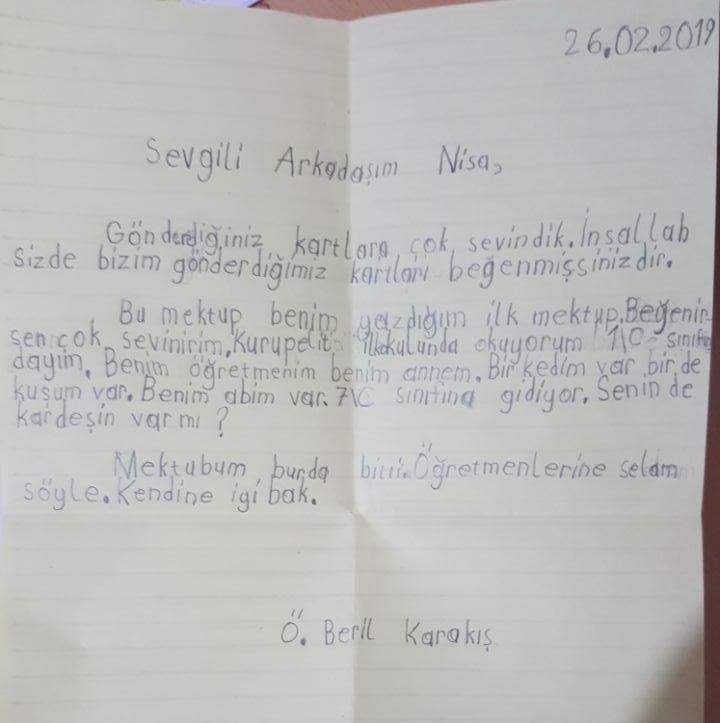 26.02.2019
Sevgili Arkadaşım Nisa,
Gönderdiğiniz kartlara çok sevindik. İnşallah
sizde bizim gönderdiğimiz kartları beğenmişsinizdir.
Bu mektup benim yazdığım ilk mektup. Beğenir
sen çok sevinirim. Kurupelit ilkokulunda okuyorum 1\C sınıfın
dayım. Benim öğretmenim benim annem. Bir kedim var bir de
kuşum var. Benim abim var. 7\C sınıfına gidiyor. Senin de
kardeşin var mı ?
Mektubum burda bitti. Öğretmenlerine selam
söyle. Kendine iyi bak.
Ö. Beril Karakış